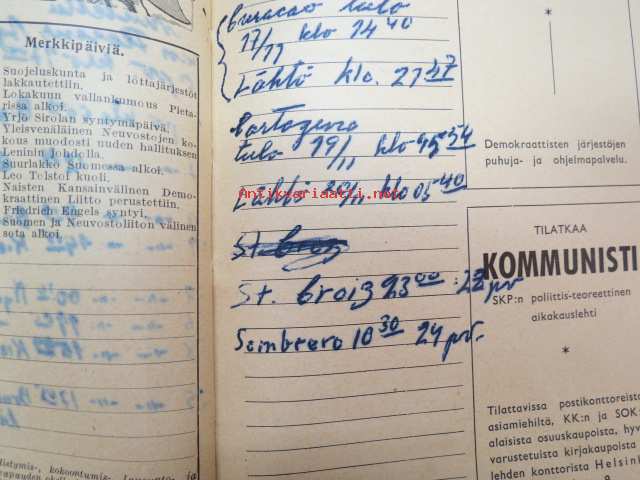 Merkkipäiviä.
Suojeluskunta ja lottajärjestöt
lakkautettiin.
Lokakuun vallankumous Pieta-
rissa alkoi.
Yrjö Sirolan syntymäpäivä.
Yleisvenäläinen Neuvostojen ko-
kous muodosti uuden hallituksen
Leninin johdolla.
Suurlakko Suomessa alkoi.
Leo Tolstoi kuoli.
Naisten Kansainvälinen Demo-
kraattinen Liitto perustettiin.
Friedrich Engels syntyi.
Suomen ja Neuvostoliiton välinen
sota alkoi.
Curacao tulo
17/11 klo 14 40
Lähtö klo. 21 37
Cartagena
tulo 19/11 klo 54
Lähtö 20/11 klo 05 40
St
St. Croix 23 00 22 pv
Sombrero 10 30 24 pv.
Antikvariaatti.net
*
Demokraattisten järjestöjen
puhuja- ja ohjelmapalvelu.
TILATKAA
KOMMUNISTI
SKP:n poliittis-teoreettinen
aikakauslehti
*
Tilattavissa postikonttoreista
asiamiehiltä, KK:n ja SOK:
alaisista osuuskaupoista, hyv
varustetuista kirjakaupoista
lehden konttorista Helsink